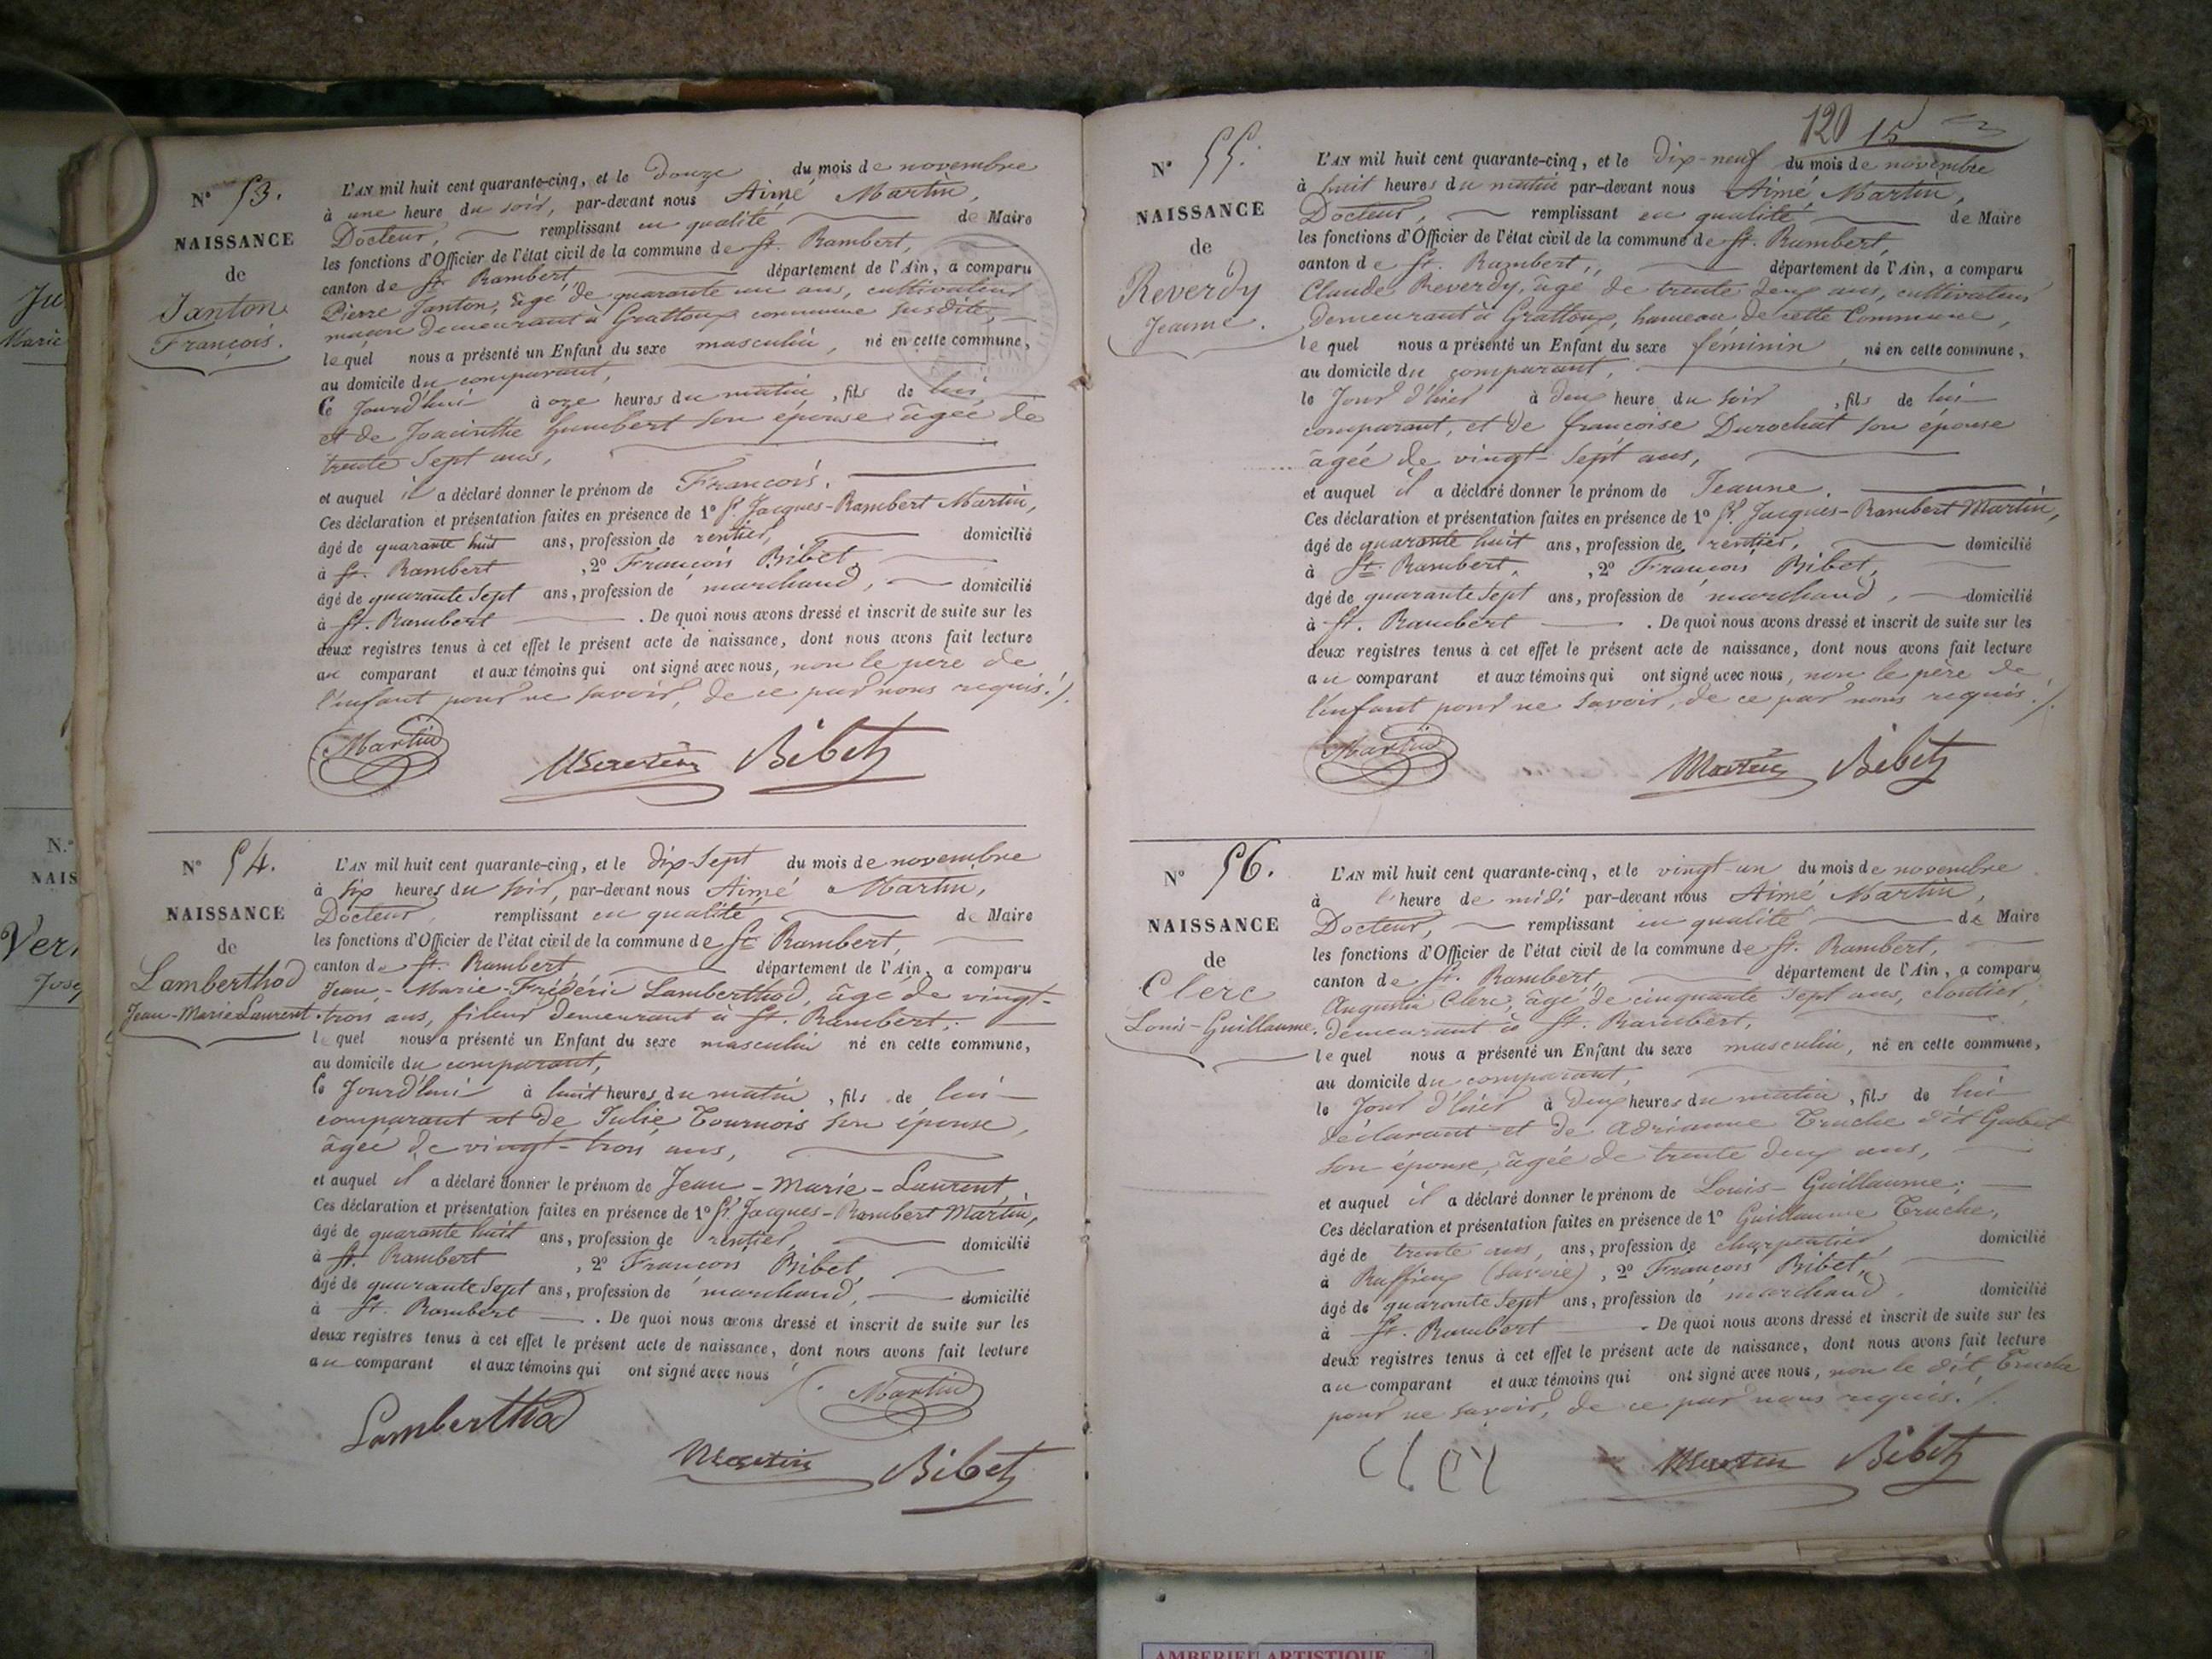 Ju
Marie
N.º
NAIS
Ver
Jose
Nº 53.
NAISSANCE
de
Janton
François.
L'AN mil huit cent quarante-cinq, et le douze du mois de novembre
à une heure du soir, par-devant nous Aimé Martin,
Docteur, remplissant en qualité de Maire
les fonctions d'Officier de l'état civil de la commune de St. Rambert,
canton de St. Rambert, département de l'Ain, a comparu
Pierre Janton, âgé de quarante un ans, cultivateur
maçon demeurant à Grattoux commune susdite,
lequel nous a présenté un Enfant du sexe masculin, né en cette commune,
au domicile du comparant,
le Jourd'hui à oze heures du matin, fils de lui
et de Joacinthe humbert son épouse âgée de
trente sept ans,
et auquel il a déclaré donner le prénom de François.
Ces déclaration et présentation faites en présence de 1º Sr. Jacques-Rambert Martin,
âgé de quarante huit ans, profession de rentier, domicilié
à St. Rambert, 2º François Bibet,
âgé de quarante sept ans, profession de marchand, domicilié
à St. Rambert. De quoi nous avons dressé et inscrit de suite sur les
deux registres tenus à cet effet le présent acte de naissance, dont nous avons fait lecture
au comparant et aux témoins qui ont signé avec nous, non le père de
l'enfant pour ne savoir, de ce par nous requis./.
Martin Martin Bibet
Nº 54.
NAISSANCE
de
Lamberthod
Jean-Marie Laurent.
L'AN mil huit cent quarante-cinq, et le dix-sept du mois de novembre
à six heures du soir, par-devant nous Aimé Martin,
Docteur, remplissant en qualité de Maire
les fonctions d'Officier de l'état civil de la commune de St. Rambert,
canton de St. Rambert, département de l'Ain, a comparu
Jean-Marie-Frédéric Lamberthod, âgé de vingt-
trois ans, fileur demeurant à St. Rambert,
lequel nous a présenté un Enfant du sexe masculin né en cette commune,
au domicile du comparant,
le Jourd'hui à huit heures du matin, fils de lui
comparant et de Julie Tournois son épouse,
âgée de vingt-trois ans,
et auquel il a déclaré donner le prénom de Jean-Marie-Laurent,
Ces déclaration et présentation faites en présence de 1º Sr. Jacques-Rambert Martin,
âgé de quarante huit ans, profession de rentier, domicilié
à St. Rambert, 2º François Bibet,
âgé de quarante sept ans, profession de marchand, domicilié
à St. Rambert. De quoi nous avons dressé et inscrit de suite sur les
deux registres tenus à cet effet le présent acte de naissance, dont nous avons fait lecture
au comparant et aux témoins qui ont signé avec nous
Martin
Lamberthod Martin Bibet
120 15
Nº 55.
NAISSANCE
de
Reverdy
Jeanne.
L'AN mil huit cent quarante-cinq, et le dix-neuf du mois de novembre
à huit heures du matin par-devant nous Aimé Martin,
Docteur, remplissant en qualité de Maire
les fonctions d'Officier de l'état civil de la commune de St. Rambert,
canton de St. Rambert, département de l'Ain, a comparu
Claude Reverdy, âgé de trente deux ans, cultivateur
demeurant à Grattoux, hameau de cette Commune,
lequel nous a présenté un Enfant du sexe féminin, né en cette commune,
au domicile du comparant,
le Jour d'hier à deux heure du soir, fils de lui
comparant, et de françoise Durochat son épouse
âgée de vingt-sept ans,
et auquel il a déclaré donner le prénom de Jeanne.
Ces déclaration et présentation faites en présence de 1º Sr. Jacques-Rambert Martin,
âgé de quarante huit ans, profession de rentier, domicilié
à St. Rambert, 2º François Bibet,
âgé de quarante sept ans, profession de marchand, domicilié
à St. Rambert. De quoi nous avons dressé et inscrit de suite sur les
deux registres tenus à cet effet le présent acte de naissance, dont nous avons fait lecture
au comparant et aux témoins qui ont signé avec nous, non le père de
l'enfant pour ne savoir, de ce par nous requis./.
Martin Martin Bibet
Nº 56.
NAISSANCE
de
Clerc
Louis-Guillaume.
L'AN mil huit cent quarante-cinq, et le vingt-un du mois de novembre
à l'heure de midi par-devant nous Aimé Martin,
Docteur, remplissant en qualité de Maire
les fonctions d'Officier de l'état civil de la commune de St. Rambert,
canton de St. Rambert, département de l'Ain, a comparu
Clerc, âgé de cinquante sept ans, cloutier,
demeurant à St. Rambert,
lequel nous a présenté un Enfant du sexe masculin, né en cette commune,
au domicile du comparant,
le Jour d'hier à deux heures du matin, fils de lui
déclarant et de adrianne Truche dit Gabet
son épouse, âgée de trente deux ans,
et auquel il a déclaré donner le prénom de Louis-Guillaume;
Ces déclaration et présentation faites en présence de 1º Guillaume Truche,
âgé de trente ans, ans, profession de charpentier, domicilié
à Ruffieux (Savoie), 2º François Bibet,
âgé de quarante sept ans, profession de marchand, domicilié
à St. Rambert. De quoi nous avons dressé et inscrit de suite sur les
deux registres tenus à cet effet le présent acte de naissance, dont nous avons fait lecture
au comparant et aux témoins qui ont signé avec nous, non le dit Truche
pour ne savoir, de ce par nous requis./.
Martin Bibet
AMBERIEU ARTISTIQUE